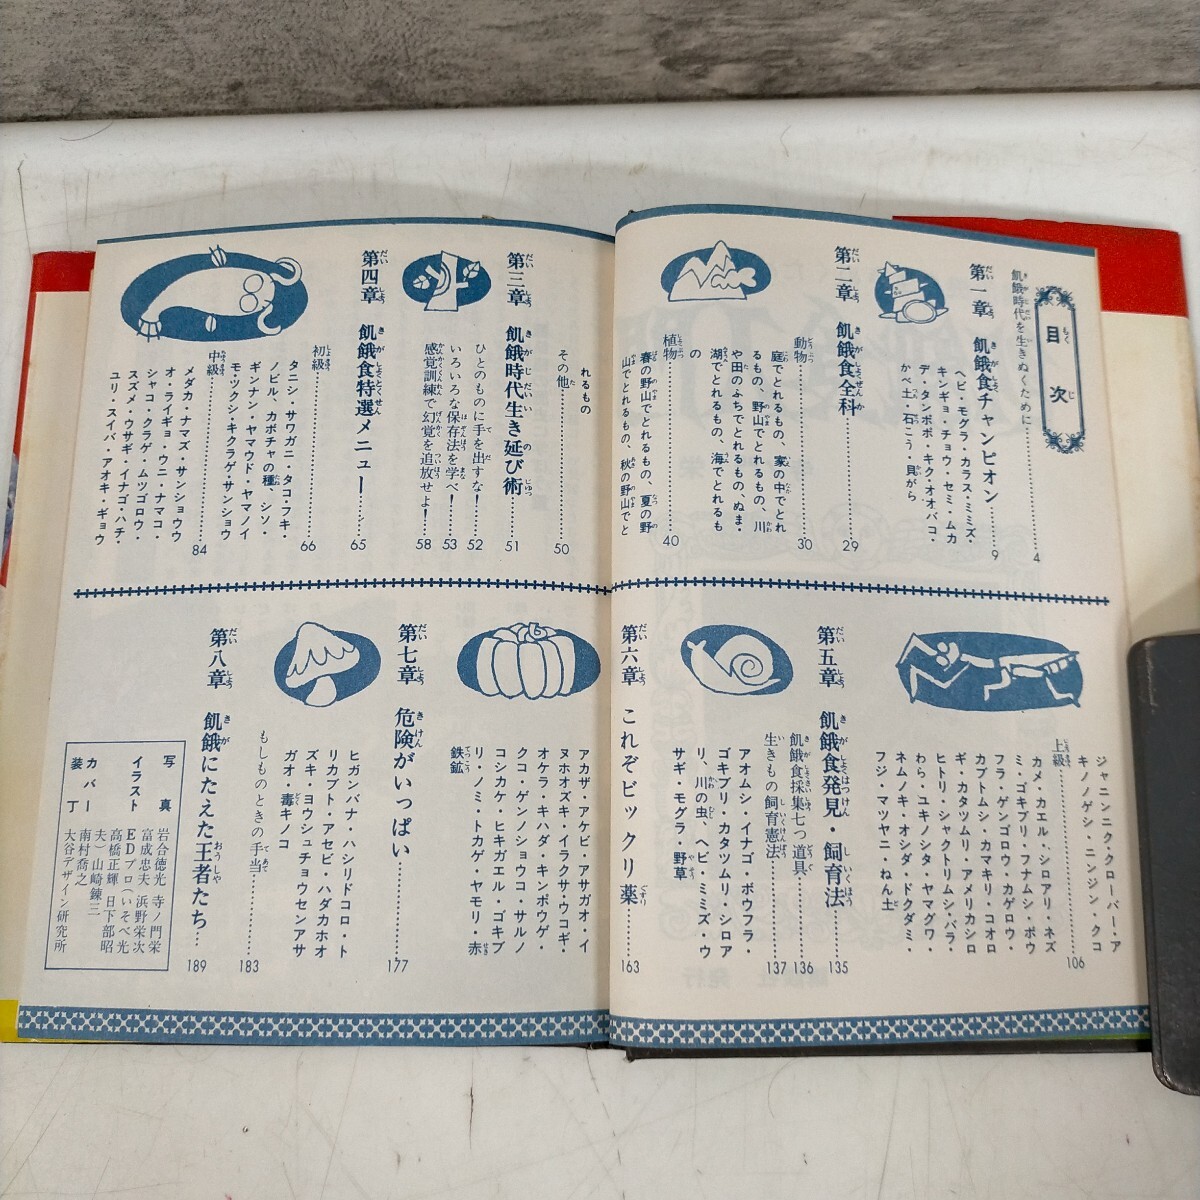 目次
飢餓時代を生きぬくために………4
第一章 飢餓食チャンピオン………9
ヘビ・モグラ・カラス・ミミズ・
キンギョ・チョウ・セミ・ムカ
デ・タンポポ・キク・オオバコ・
かべ土・石こう・貝がら
第二章 飢餓食全科………29
動物………30
庭でとれるもの、家の中でとれ
るもの、野山でとれるもの、川
や田のふちでとれるもの、ぬま・
湖でとれるもの、海でとれるも
の
植物………40
春の野山でとれるもの、夏の野
山でとれるもの、秋の野山でと
れるもの
その他………50
第三章 飢餓時代生き延び術………51
ひとのものに手を出すな！………52
いろいろな保存法を学べ！………53
感覚訓練で幻覚を追放せよ！………58
第四章 飢餓食特選メニュー………65
初級………66
タニシ・サワガニ・タコ・フキ・
ノビル・カボチャの種・シソ・
ギンナン・ヤマウド・ヤマノイ
モ・ツクシ・キクラゲ・サンショウ
中級………84
メダカ・ナマズ・サンショウウ
オ・ライギョ・ウニ・ナマコ・
シャコ・クラゲ・ムツゴロウ・
スズメ・ウサギ・イナゴ・ハチ・
ユリ・スイバ・アオキ・ギョウ
ジャニンニク・クローバー・ア
キノノゲシ・ニンジン・クコ
上級………106
カメ・カエル・シロアリ・ネズ
ミ・ゴキブリ・フナムシ・ボウ
フラ・ゲンゴロウ・カゲロウ・
カブトムシ・カマキリ・コオロ
ギ・カタツムリ・アメリカシロ
ヒトリ・シャクトリムシ・バラ・
わら・ユキノシタ・ヤマグワ・
ネムノキ・オシダ・ドクダミ・
フジ・マツヤニ・ねん土
第五章 飢餓食発見・飼育法………135
飢餓食採集七つ道具………136
生きもの飼育憲法………137
アオムシ・イナゴ・ボウフラ・
ゴキブリ・カタツムリ・シロア
リ、川の虫、ヘビ・ミミズ・ウ
サギ・モグラ・野草
第六章 これぞビックリ薬………163
アカザ・アケビ・アサガオ・イ
ヌホオズキ・イラクサ・ウコギ・
オケラ・キハダ・キンポウゲ・
クコ・ゲンノショウコ・サルノ
コシカケ・ヒキガエル・ゴキブ
リ・ノミ・トカゲ・ヤモリ・赤
鉄鉱
第七章 危険がいっぱい………177
ヒガンバナ・ハシリドコロ・ト
リカブト・アセビ・ハダカホオ
ズキ・ヨウシュチョウセンアサ
ガオ・毒キノコ
もしものときの手当………183
第八章 飢餓にたえた王者たち…189
写真 岩合徳光 寺ノ門栄
富成忠夫 浜野栄次
イラスト EDプロ（いそべ光
高橋正輝 日下部昭
夫）山崎錬三
カバー 南村喬之
装丁 大谷デザイン研究所